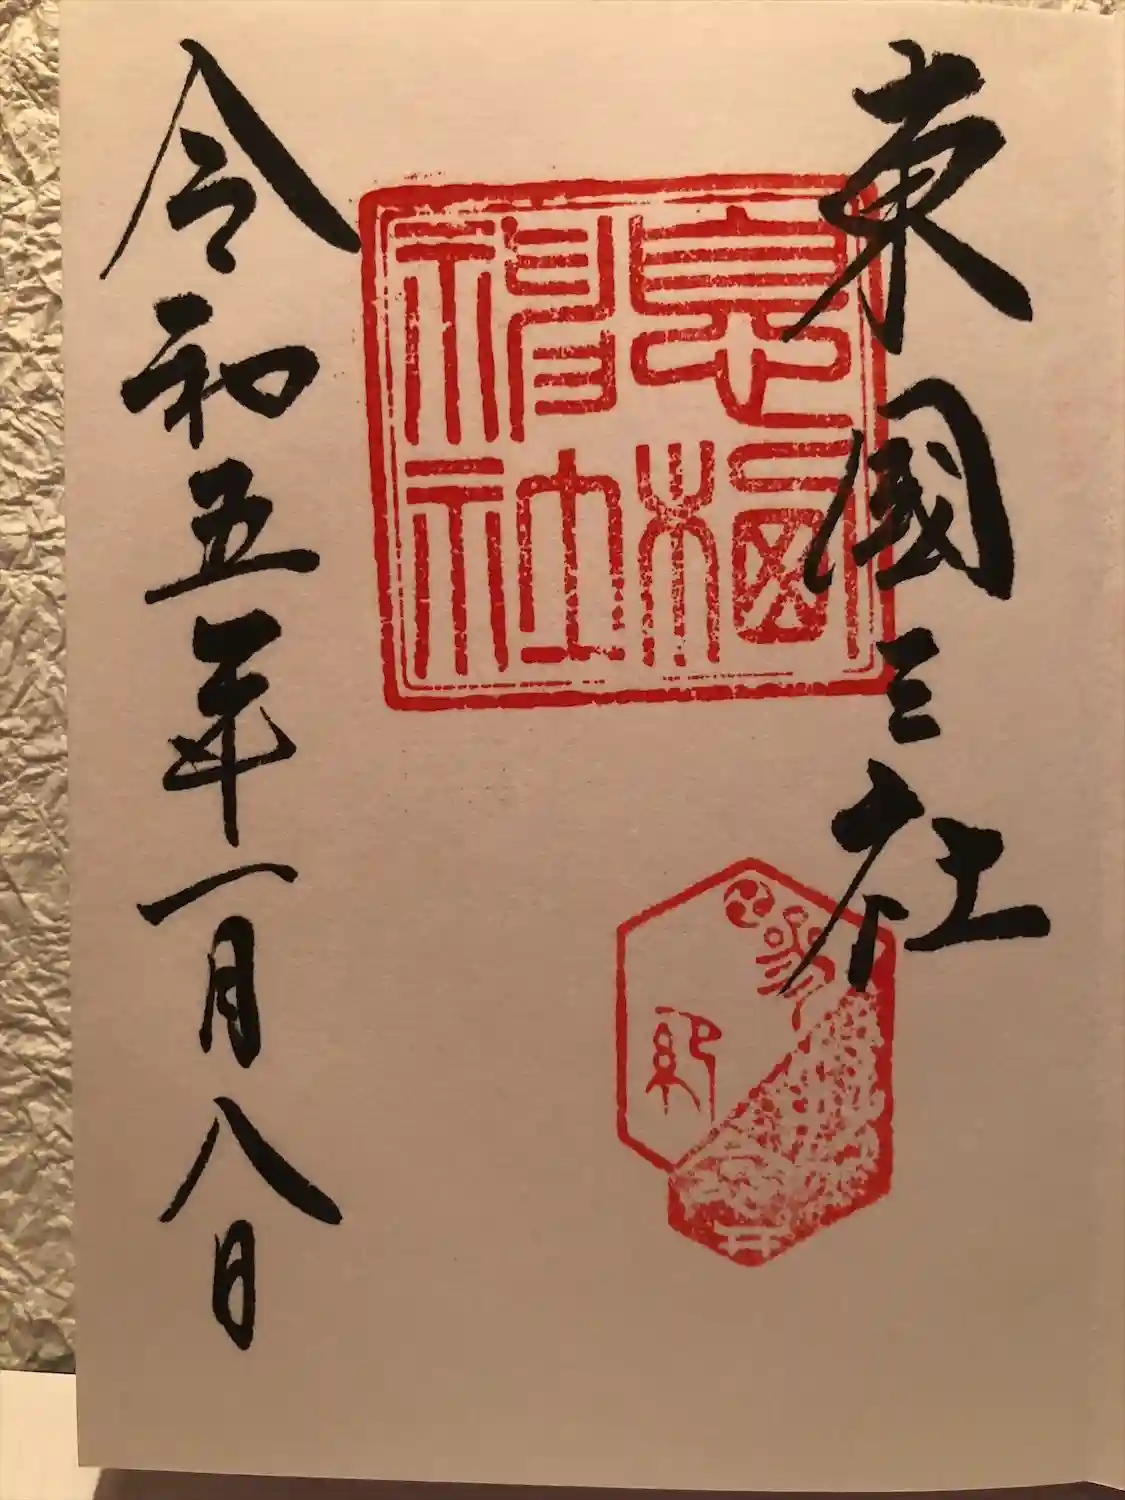 東國三社
息栖
神社
令和五年一月八日